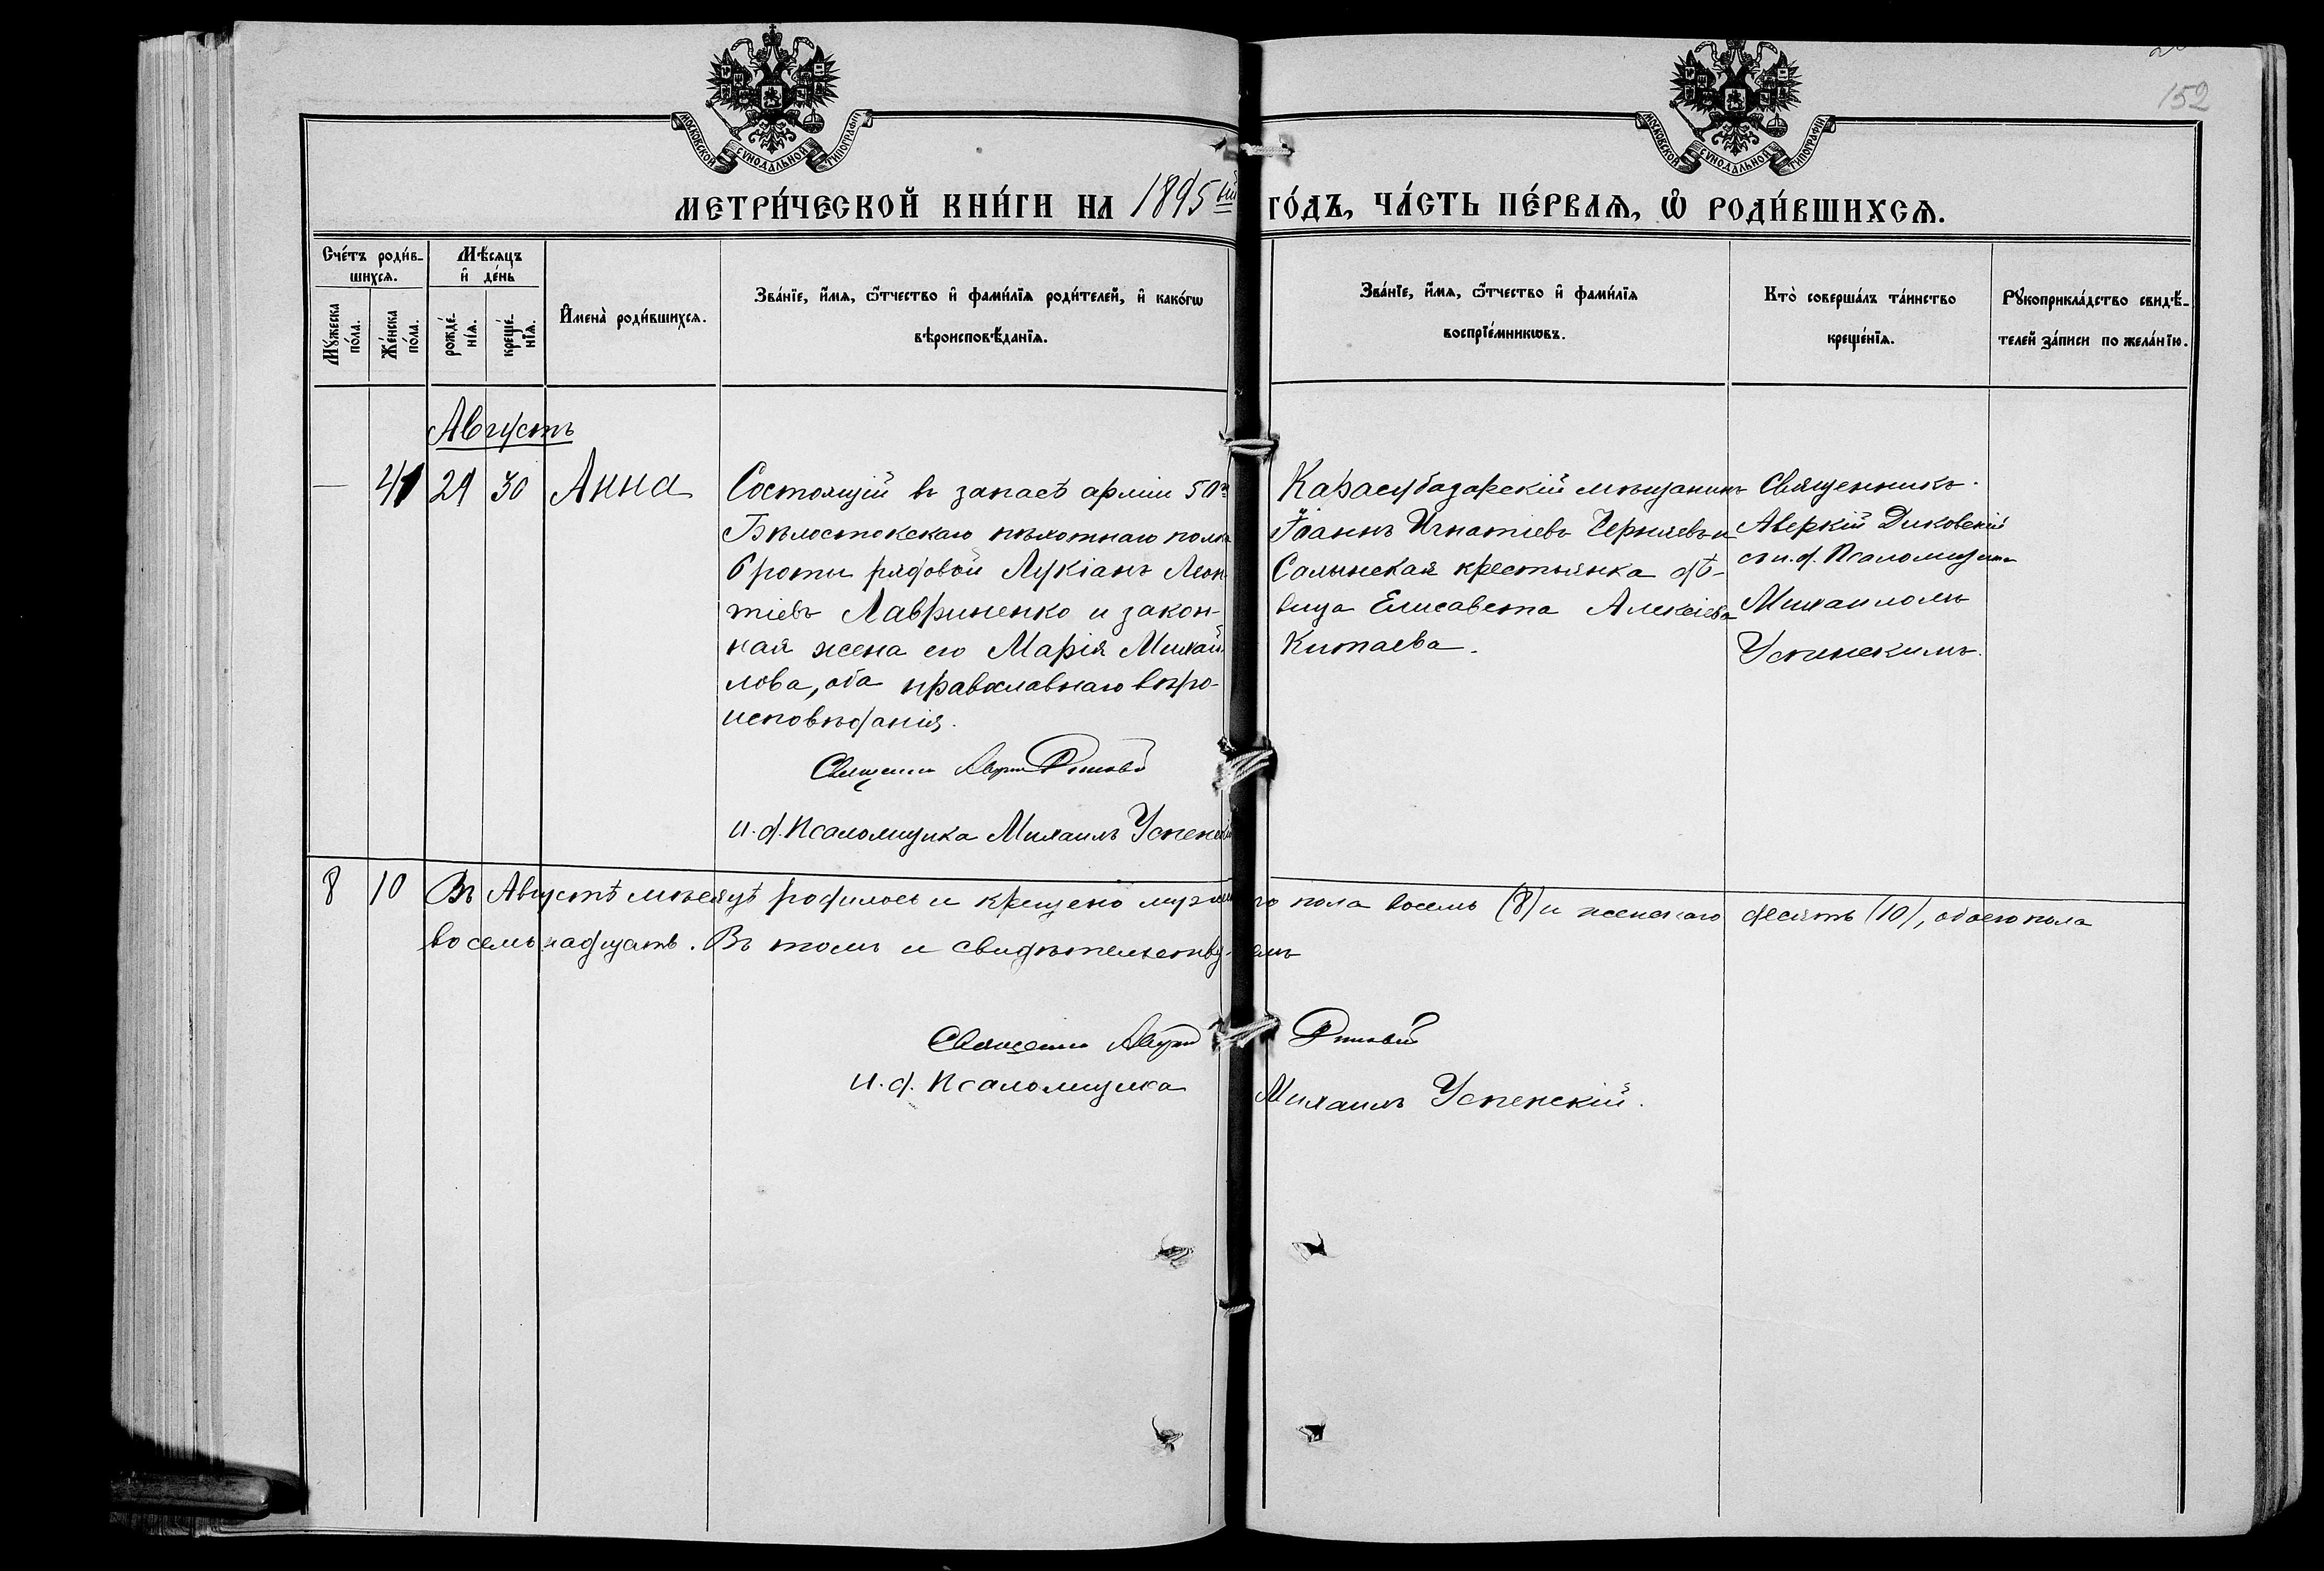 152
МОСКОВСКОЙ СѴНОДАЛЬНОЙ ТИПОГРАФІИ
МОСКОВСКОЙ СѴНОДАЛЬНОЙ ТИПОГРАФІИ
МЕТРИ́ЧЕСКОЙ КНИ́ГИ НА 1895ый ГО́ДЪ, ЧА́СТЬ ПЕ́РВАѦ, Ѡ҆ РОДИ́ВШИХСѦ.
Сче́тъ роди́в-
шихсѧ.
Мꙋ́жеска по́ла.
Же́нска по́ла.
Мѣ́сѧцъ
и҆ де́нь
рожде́-
нїѧ.
креще́-
нїѧ.
И҆мена̀ роди́вшихсѧ.
Зва́нїе, и҆́мѧ, ѻ҆́тчество и҆ фами́лїѧ роди́телей, и҆ како́гѡ
вѣроисповѣ́данїѧ.
Зва́нїе, и҆́мѧ, ѻ҆́тчество и҆ фами́лїѧ
воспрїе́мникѡвъ.
Кто̀ соверша́лъ та́инство
креще́нїѧ.
Рꙋкоприкла́дство свидѣ́-
телей за́писи по жела́нїю.
Августъ
— 41 29 30 Анна
Состоящій въ запасѣ арміи 50го
Бѣлостокскаго пѣхотнаго полка
6 роты рядовой Лукіанъ Леон-
тіевъ Лавриненко и закон-
ная жена его Марія Михай-
лова, оба православнаго вѣро-
исповѣданія.
Священникъ
и. д. Псаломщика Михаилъ Успенскій
Карасубазарскій мѣщанинъ
Іоаннъ Игнатіевъ Черняевъ и
Салынская крестьянка дѣ-
вица Елисавета Алексіева
Китаева.
Священникъ
Аверкій Диковскій
съ и. д. Псаломщика
Михаиломъ
Успенскимъ.
8 10 Въ Августѣ мѣсяцѣ родилось и крещено мужескаго пола восемь (8) и женскаго десять (10), обоего пола
восемьнадцать. Въ томъ и свидѣтельствуемъ
Священникъ
и. д. Псаломщика Михаилъ Успенскій.